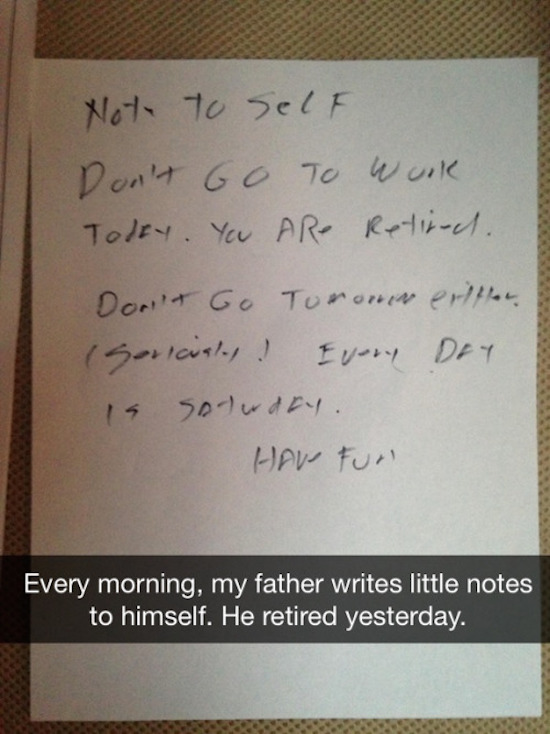 Note To Self
Don't Go To Work
Today. You Are Retired.
Don't Go Tomorrow eitther.
(Seriously!) Every Day
is Saturday.
Have Fun
Every morning, my father writes little notes
to himself. He retired yesterday.